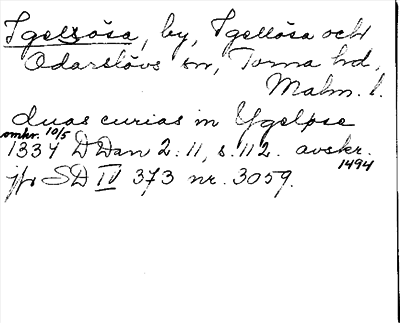 Igelsösa, by, Igellösa och
Odarslövs sn, Torna hd,
Malm. l.
duas curias in Ygelpse
omkr. 10/5
1334 DDan 2:11, s. 112. avskr.
1494
jfr SD IV 373 nr. 3059.